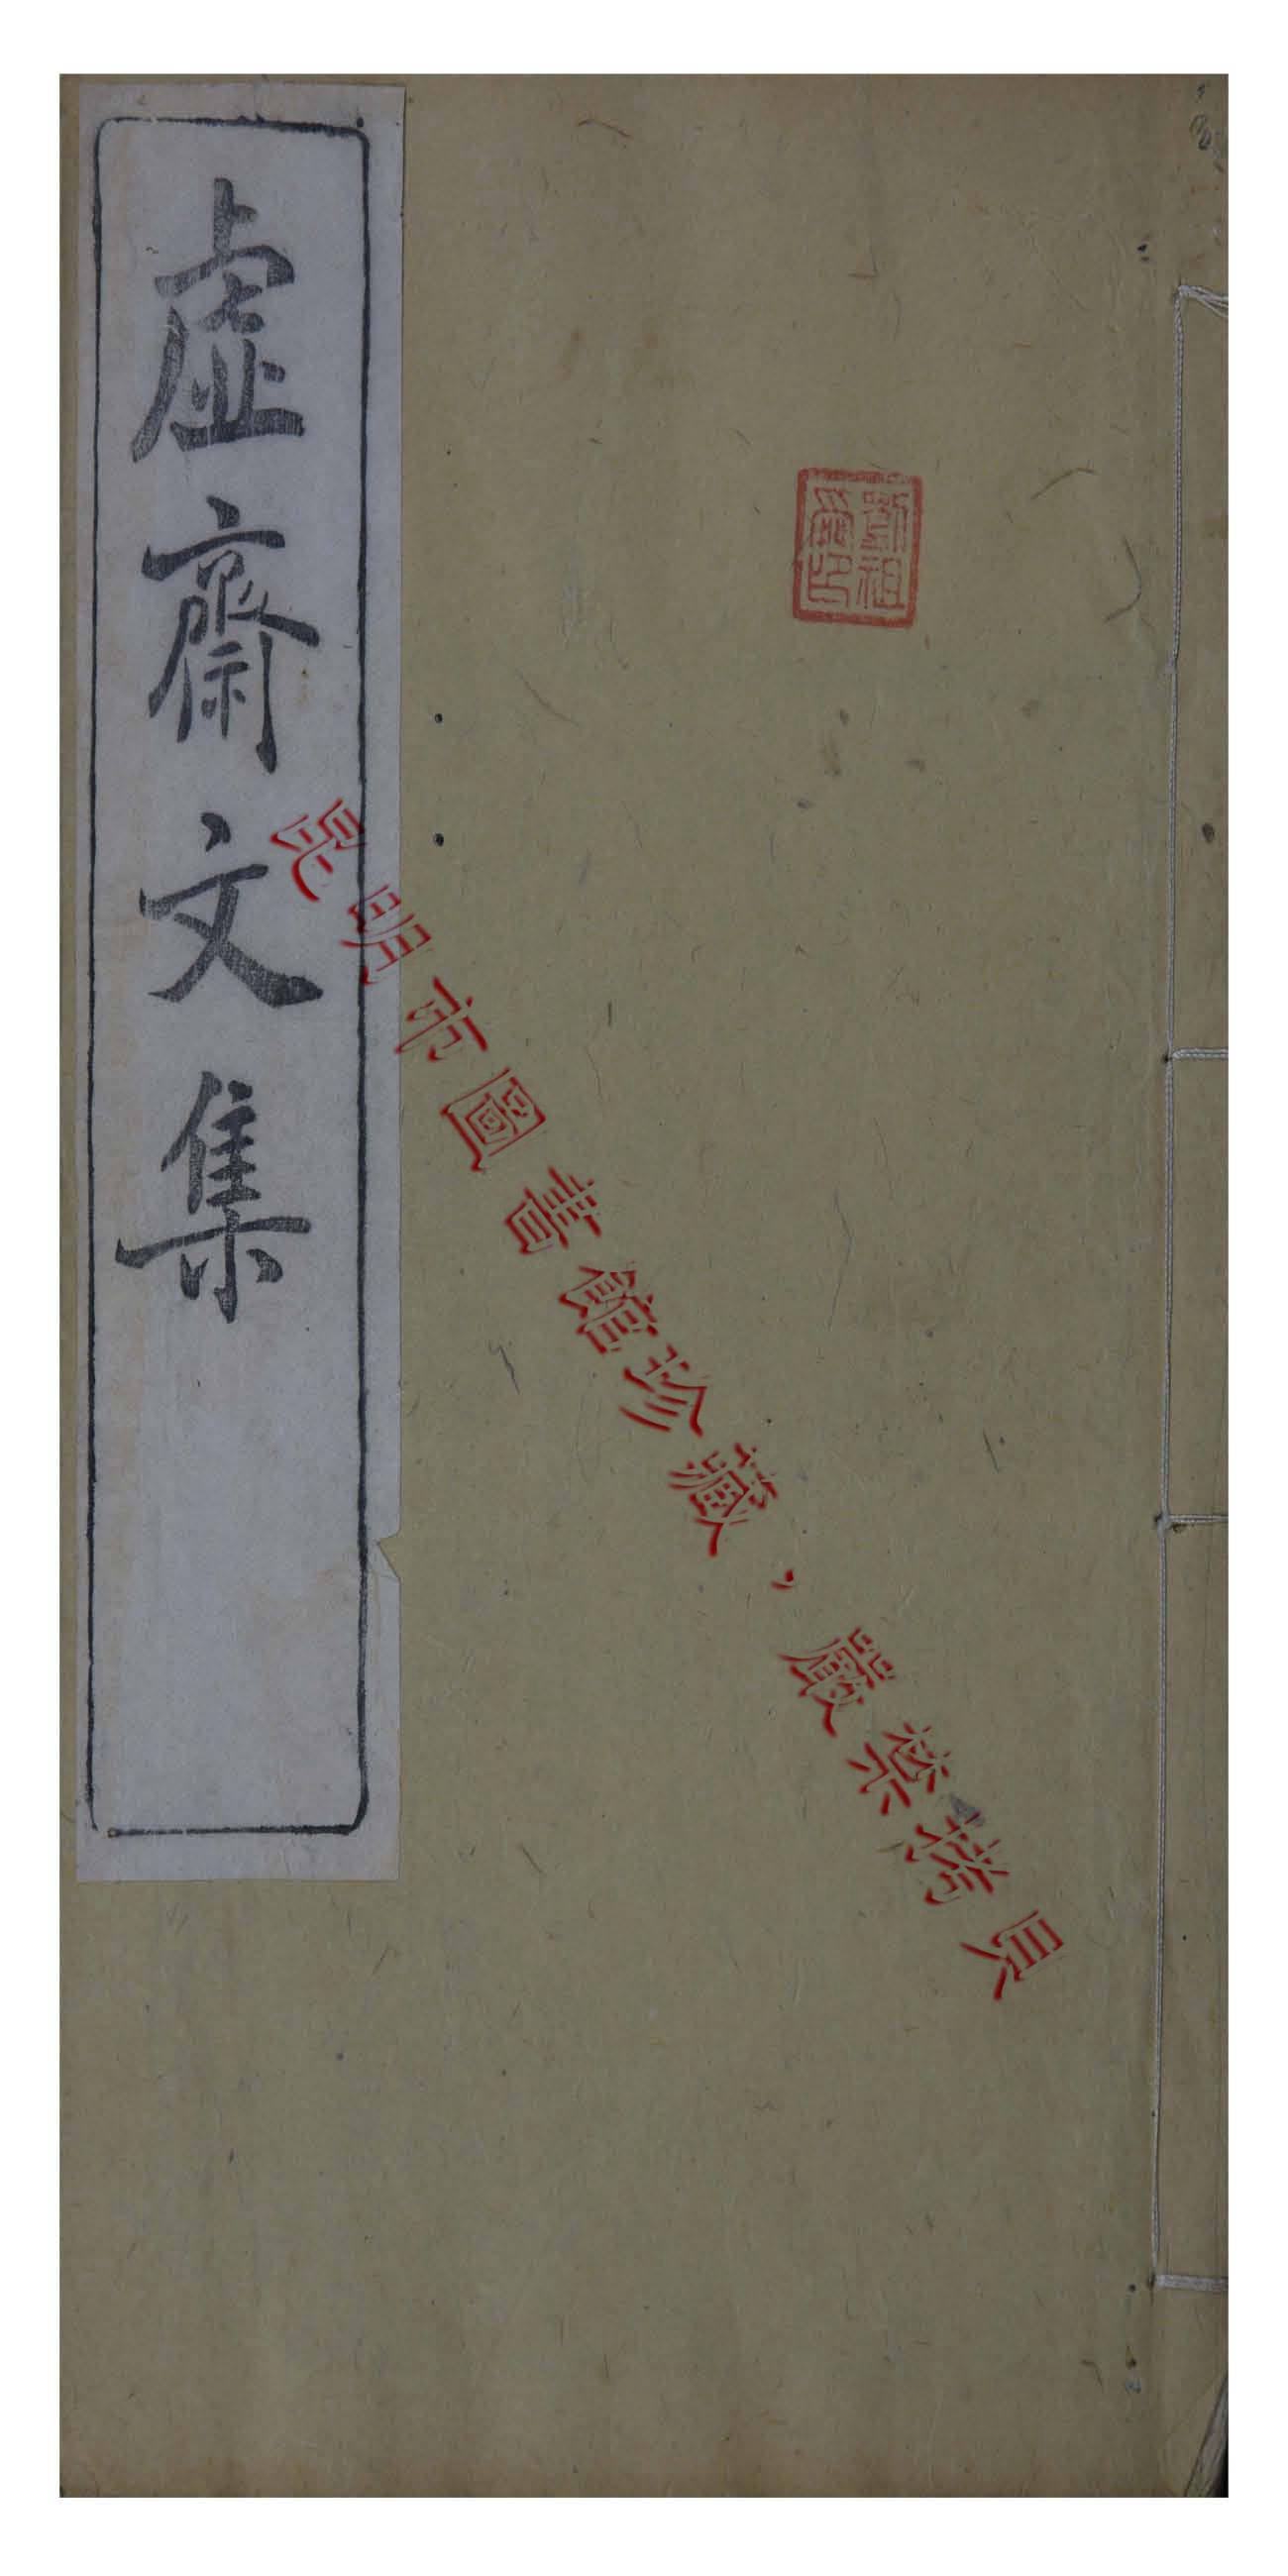 虛齋文集
昆明市圖書館珍藏,嚴禁拷貝